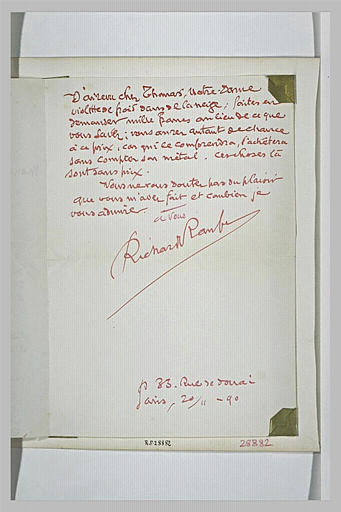 D'ailleurs cher Thomas, votre Dame
violette de froid dans de la neige ; faites en
demander mille francs au lieu de ce que
vous savez ; vous aurez autant de chance
à ce prix, car qui le comprendra, l'achètera
sans compter son métal. Ces choses là
sont sans prix.
Vous ne vous doutez pas du plaisir
que vous m'avez fait et combien je
vous admire.
à vous
Richard Ranft
33. Rue de Douai
Paris, 20/11 - 90
RF.28882
28882